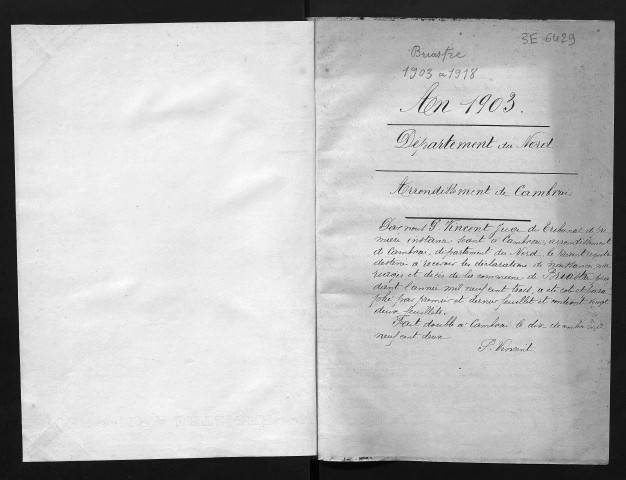 3E 6429
Briastre
1903 à 1918
An 1903.
Département du Nord
Arrondissement de Cambrai
Par nous G. Vincent juge du Tribunal de Pre
mière instance séant à Cambrai, arrondissement
de Cambrai, département du Nord, le présent registre
destiné à recevoir les déclarations de naissance, ma
riages et décès de la commune de Briastre pen
dant l'année mil neuf cent trois, a été coté et para
phé par premier et dernier feuillet et contient vingt
deux feuillets.
Fait double à Cambrai le dix décembre mil
neuf cent deux
G. Vincent